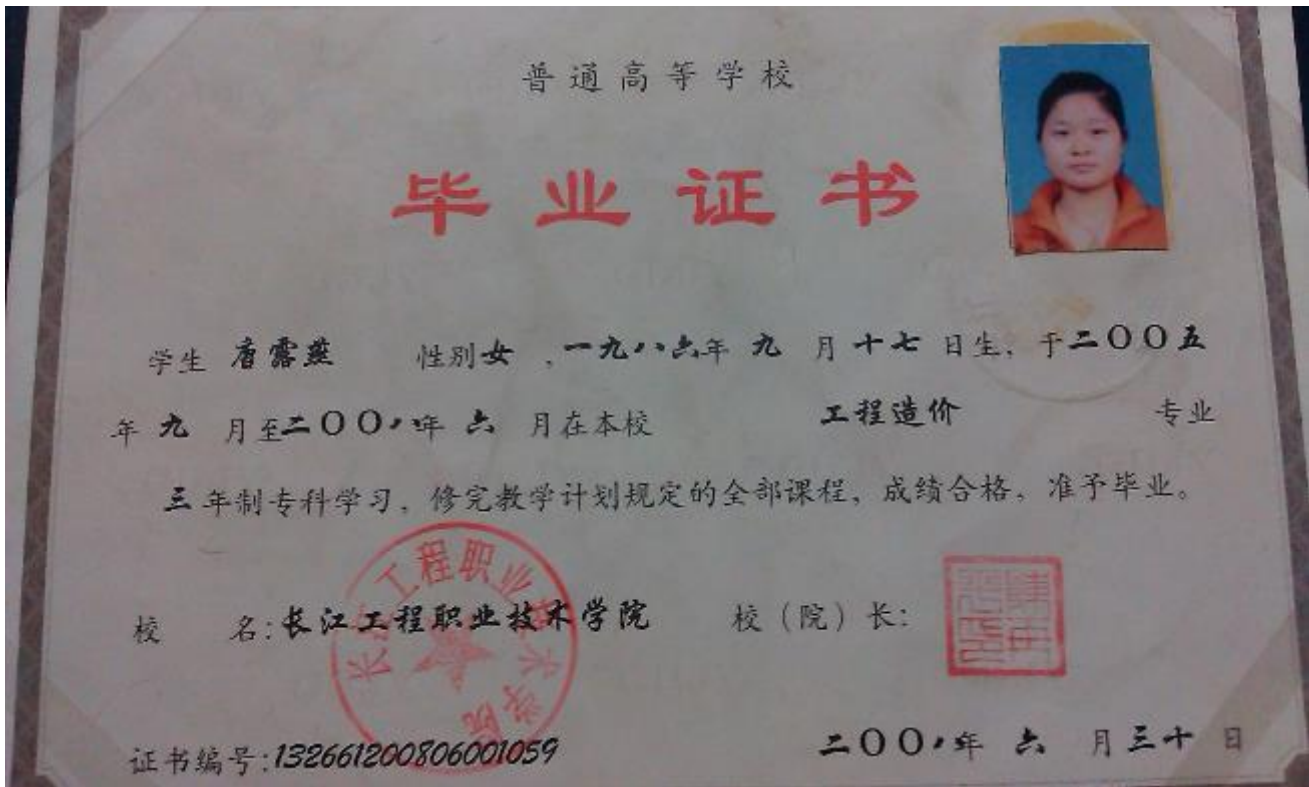 普通高等学校
毕业证书
学生 唐露燕 性别女，一九八六年 九 月 十七 日生，于二〇〇五
年 九 月至二〇〇八年 六 月在本校 工程造价 专业
三 年制专科学习，修完教学计划规定的全部课程，成绩合格，准予毕业。
校 名：长江工程职业技术学院 校（院）长：
长江工程职业技术学院
证书编号：132661200806001059 二〇〇八年 六 月 三十 日